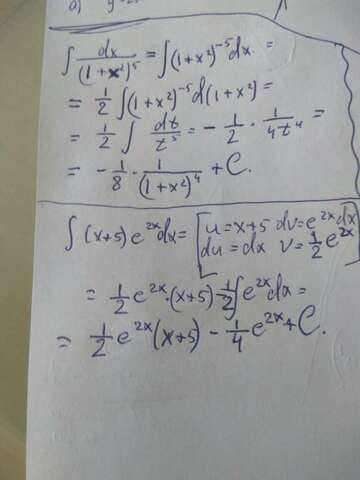 a)
∫ dx/(1+x²)⁵ = ∫(1+x²)⁻⁵dx. =
= 1/2 ∫(1+x²)⁻⁵ d(1+x²) =
= 1/2 ∫ dt/t⁵ = - 1/2 · 1/4t⁴ =
= - 1/8 · 1/(1+x²)⁴ + C.
∫ (x+5) e²ˣdx = [u=x+5 dv=e²ˣdx
du=dx v=1/2 e²ˣ]
= 1/2 e²ˣ·(x+5) - 1/2 ∫e²ˣdx =
= 1/2 e²ˣ(x+5) - 1/4 e²ˣ + C.